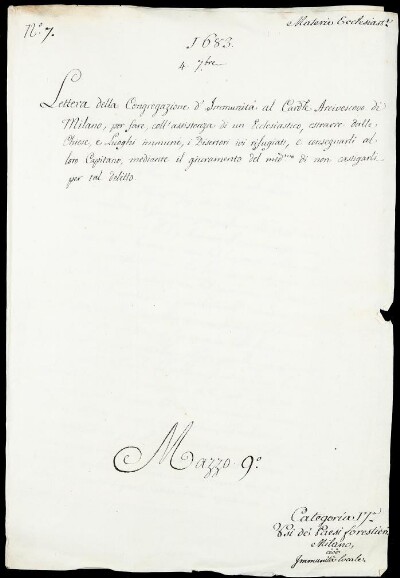 N.° 7.
Materie Ecclesias.e
1683.
4 7bre
Lettera della Congregazione d'Immunità al Cardle Arcivescovo di
Milano, per fare, coll'assistenza di un Ecclesiastico, estrarre dalle
Chiese, e Luoghi immune, i Disertori ivi rifugiati, e consegnarli al
loro Capitano, mediante il giuramento del medmo di non castigarli
per tal delitto.
Mazzo 9.°
Categoria 17.a
Usi dei Paesi forestieri
Milano,
cioè
Immunità locale.